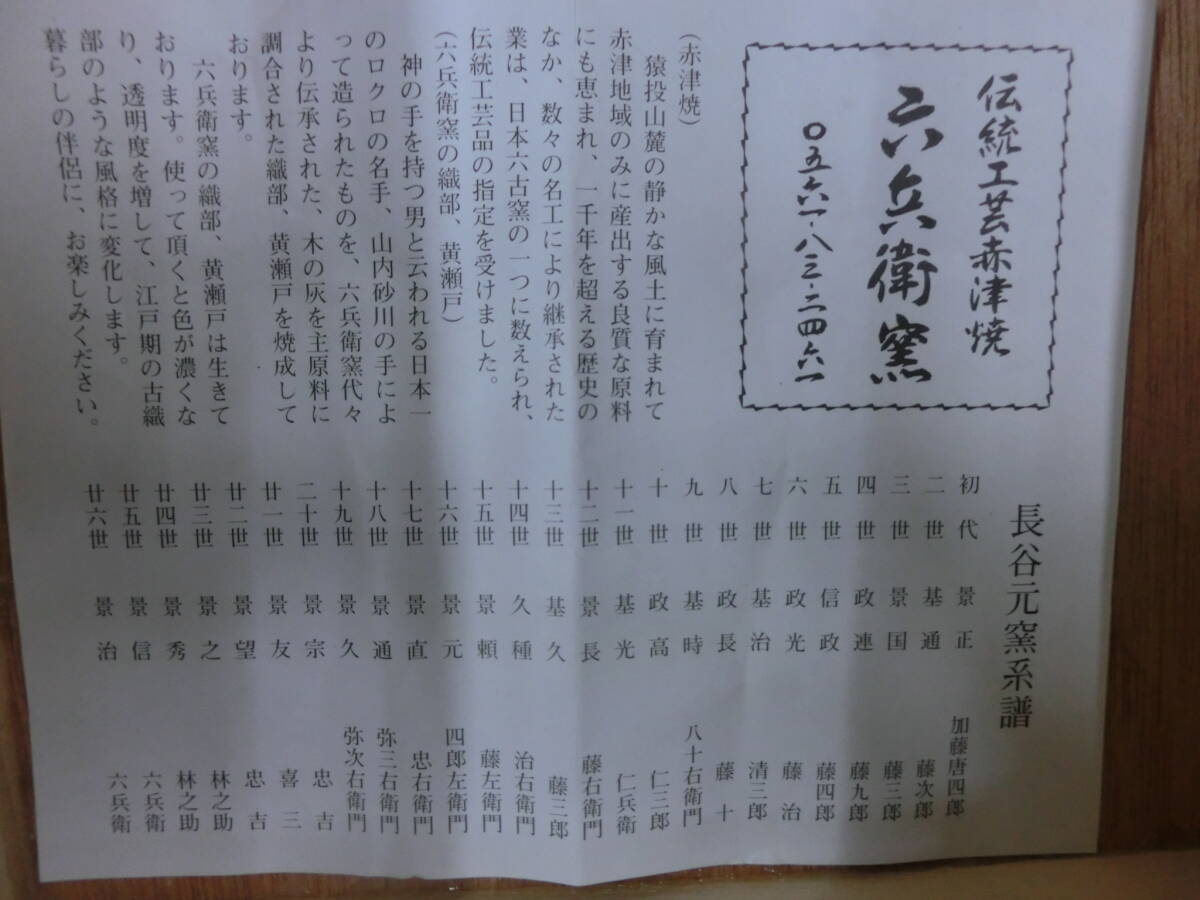 伝統工芸赤津焼
六兵衛窯
〇五六一・八二-二四六一
(赤津焼)
猿投山麓の静かな風土に育まれて
赤津地域のみに産出する良質な原料
にも恵まれ、一千年を超える歴史の
なか、数々の名工により継承された
業は、日本六古窯の一つに数えられ、
伝統工芸品の指定を受けました。
(六兵衛窯の織部、黄瀬戸)
神の手を持つ男と云われる日本一
のロクロの名手、山内砂川の手によ
って造られたものを、六兵衛窯代々
より伝承された、木の灰を主原料に
調合された織部、黄瀬戸を焼成して
おります。
六兵衛窯の織部、黄瀬戸は生きて
おります。使って頂くと色が濃くな
り、透明度を増して、江戸期の古織
部のような風格に変化します。
暮らしの伴侶に、お楽しみください。
長谷元窯系譜
初代 景正 加藤唐四郎
二世 基通 藤次郎
三世 景国 藤三郎
四世 政連 藤九郎
五世 信政 藤四郎
六世 政光 藤治
七世 基治 清三郎
八世 政長 藤十
九世 基時 八十右衛門
十世 政高 仁三郎
十一世 基光 仁兵衛
十二世 景長 藤右衛門
十三世 基久 藤三郎
十四世 久種 治右衛門
十五世 景頼 藤左衛門
十六世 景元 四郎左衛門
十七世 景直 忠右衛門
十八世 景通 弥三右衛門
十九世 景久 弥次右衛門
二十世 景宗 忠吉
廿一世 景友 喜三
廿二世 景望 忠吉
廿三世 景之 林之助
廿四世 景秀 林之助
廿五世 景信 六兵衛
廿六世 景治 六兵衛